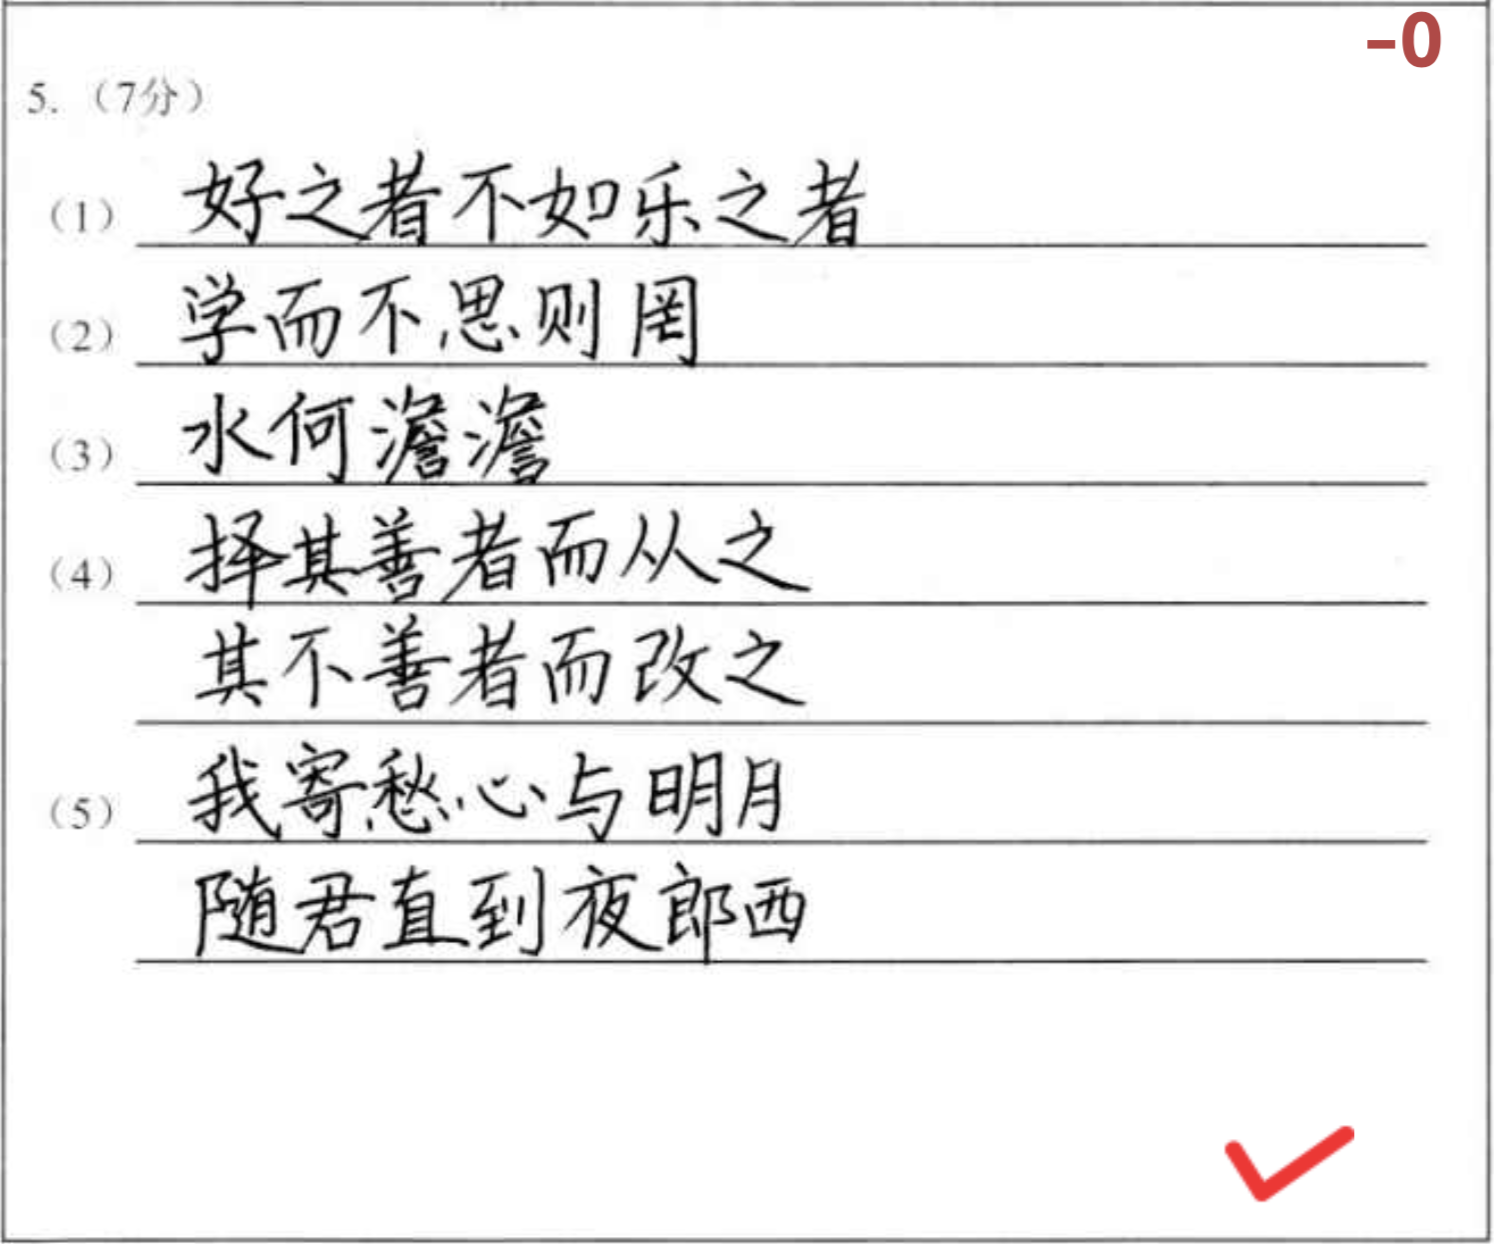 -0
5.（7分）
（1）好之者不如乐之者
（2）学而不思则罔
（3）水何澹澹
（4）择其善者而从之
其不善者而改之
（5）我寄愁心与明月
随君直到夜郎西